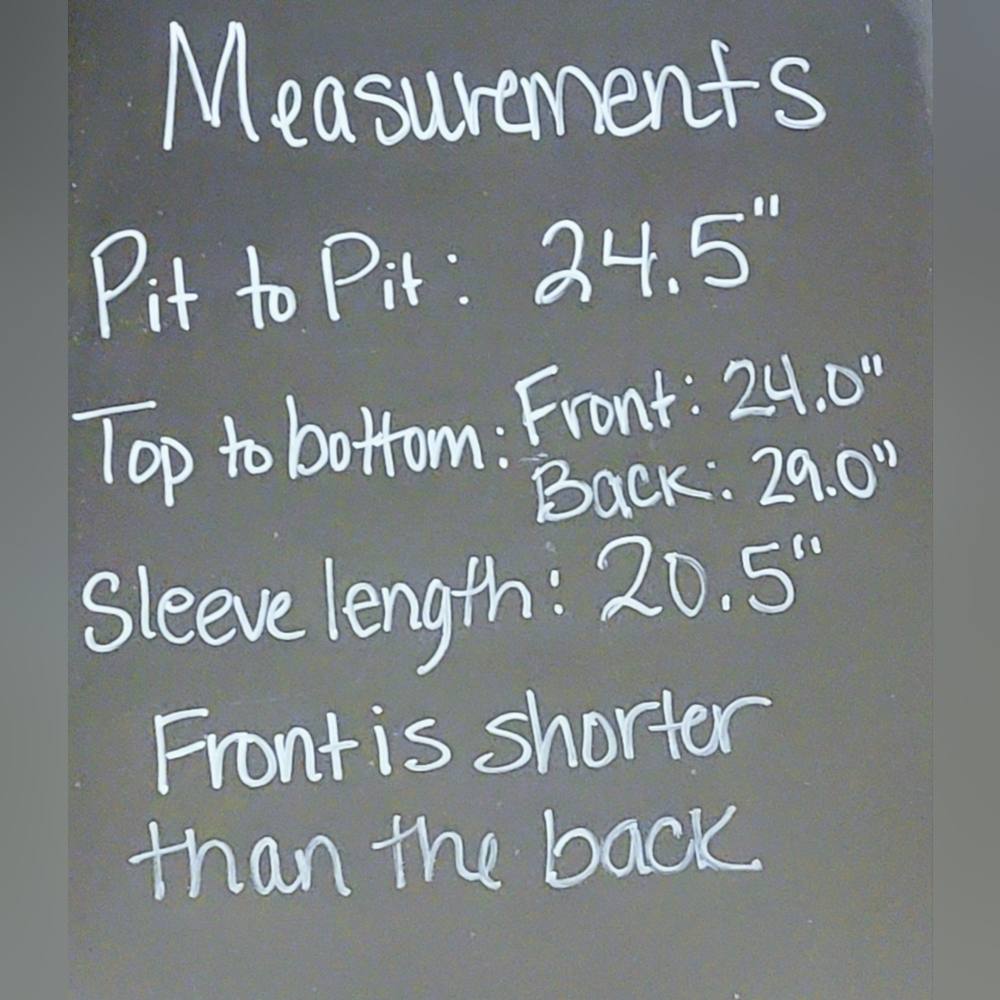 Measurements
Pit to Pit: 24.5"
Top to bottom: Front: 24.0"
Back: 29.0"
Sleeve length: 20.5"
Front is shorter
than the back